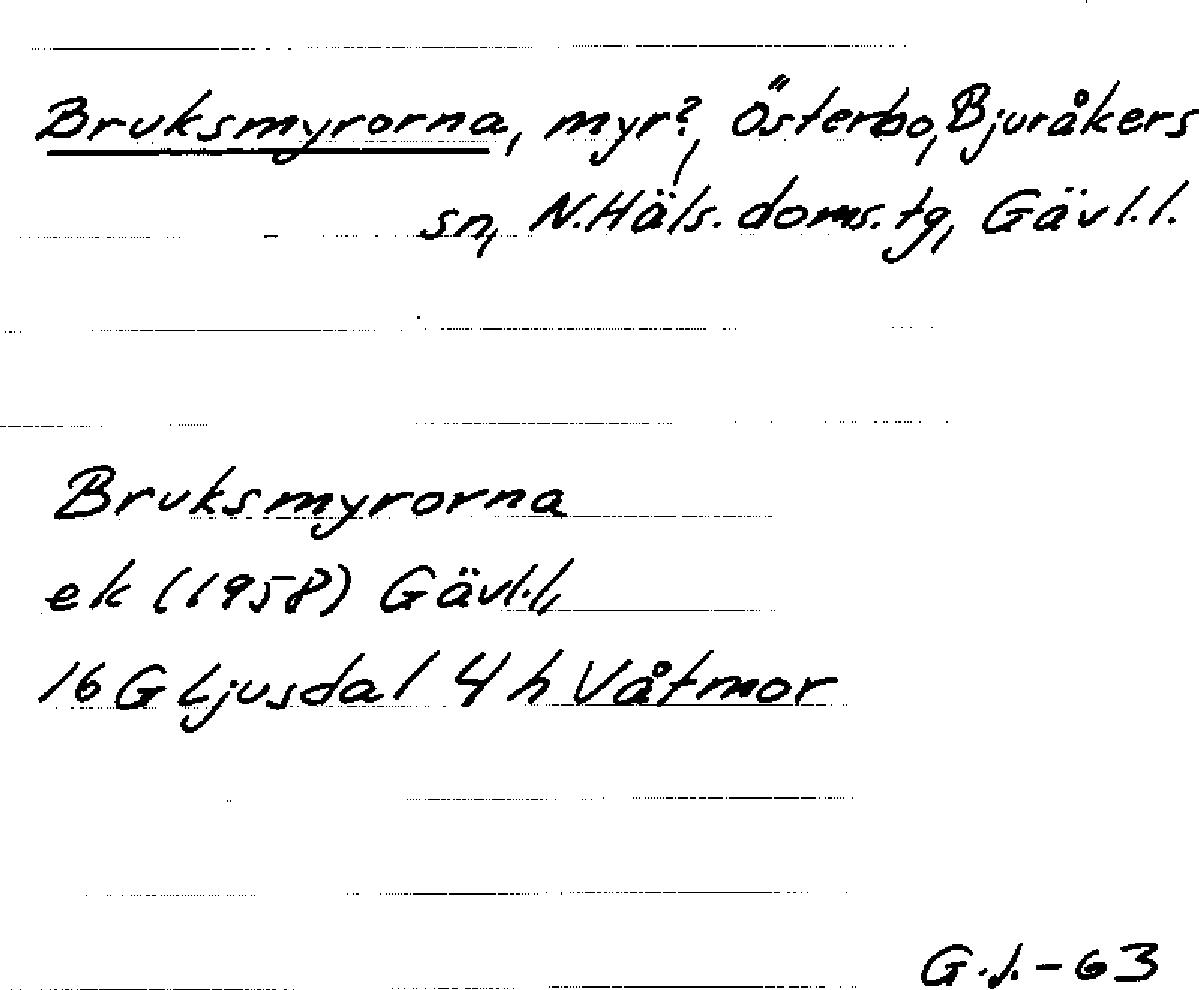 Bruksmyrorna, myr?, Österbo, Bjuråkers
sn, N.Häls.doms.tg, Gävl.l.
Bruksmyrorna
ek (1958) Gävl.l,
16 G Ljusdal 4 h Våtmor
G.J.-63